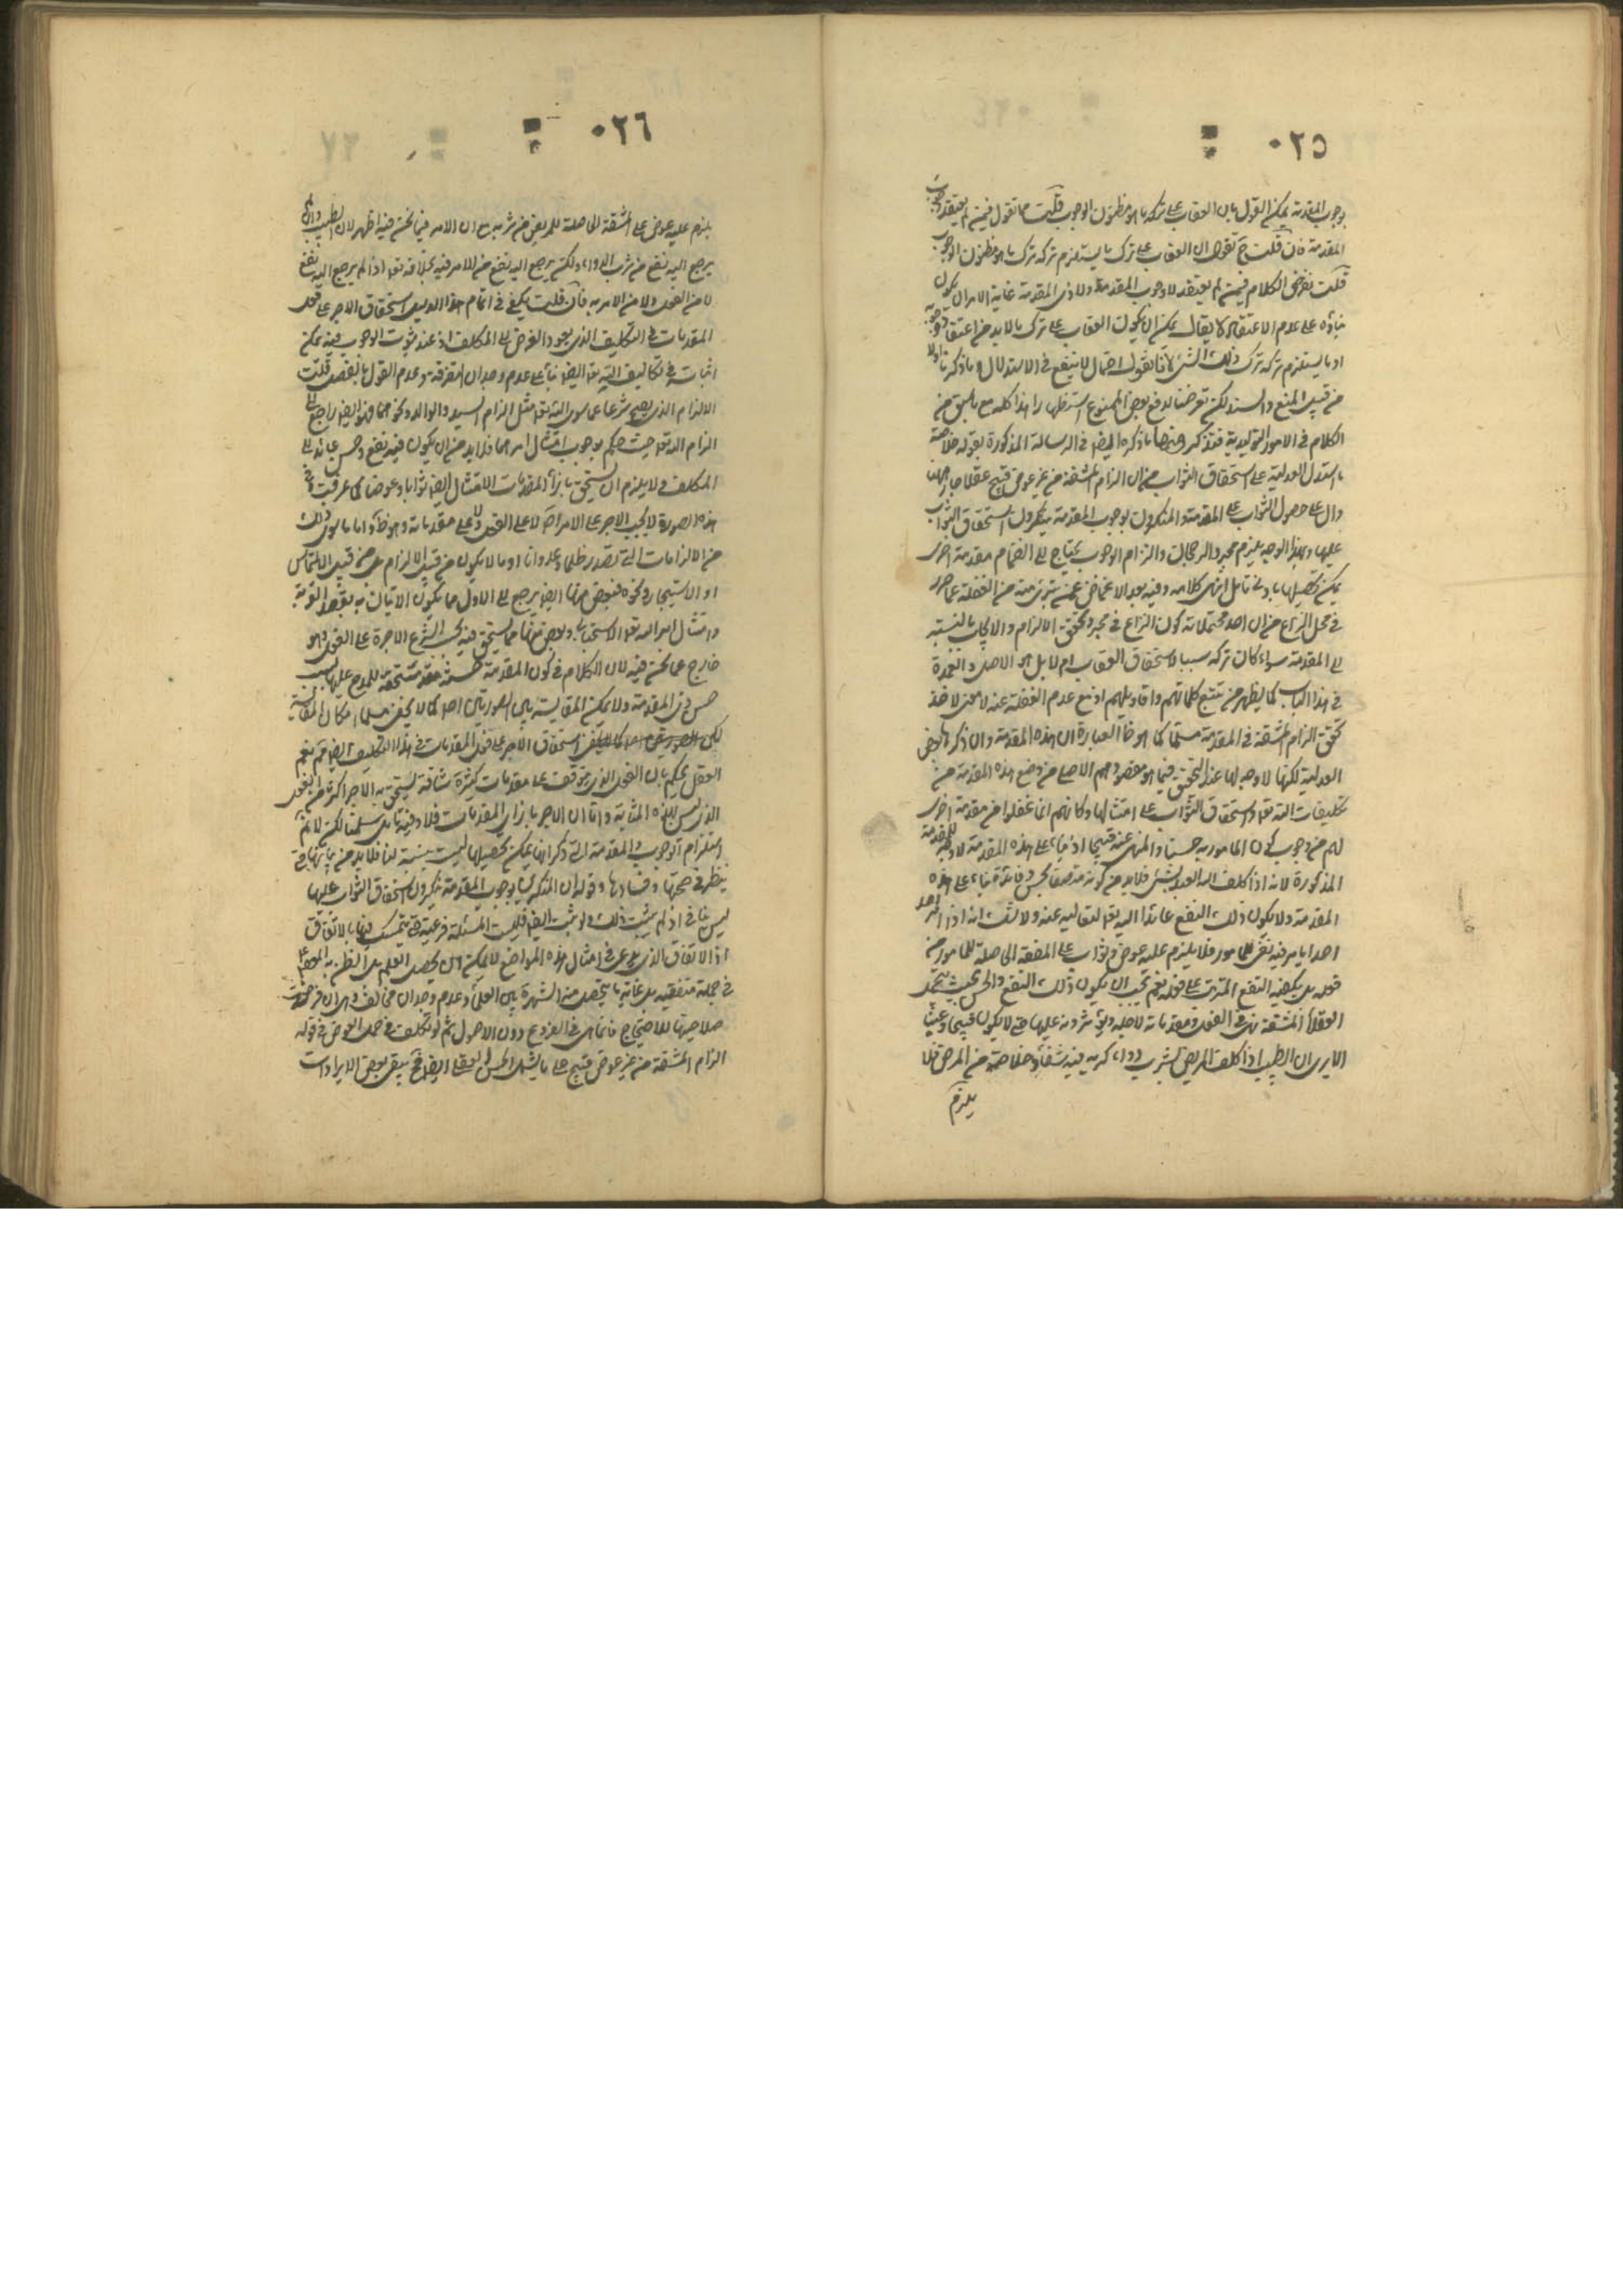 ٠٢٥
بوجوب المقدمة يمكن القول بان العقاب على تركه ما هو مظنون الوجوب قلت مما نقول فيمن لم يعتقد وجوب
المقدمة فان قلت ح نقول ان العقاب على ترك ما يستلزم تركه ترك ما هو مظنون الوجوب
قلت نفرض الكلام فيمن لم يعتقد لا وجوب المقدمة ولا ذى المقدمة غاية الامر ان يكون
بناؤه على عدم الاعتقاد لا يقال يمكن ان يكون العقاب على ترك ما لابد من اعتقاد وجوبه
او ما يستلزم تركه ترك ذلك الشئ لانا نقول احتمال لا ينفع فى الاستدلال وما ذكرنا اولا
من قبيل المنع والسند لكن تعرضنا لدفع بعض الممنوع استظهارا هذا كله مع ما سبق من
الكلام فى الامور التوليدية فتذكر ومنها ما ذكره ايضا فى الرسالة المذكورة بقوله خلاصة
ما استدل العدلية على استحقاق الثواب من ان الزام المشقة من غير عوض قبيح عقلا جار ههنا
دال على حصول الثواب على المقدمة والمنكرون لوجوب المقدمة ينكرون استحقاق الثواب
عليها وبهذا الوجه يلزم مجرد الرجحان والزام الوجوب يحتاج الى انضمام مقدمة اخرى
يمكن تحصيلها بادنى تامل انتهى كلامه وفيه بعد الاغماض عمن يتبرئ منه من الغفلة عما حرر
فى محل النزاع من ان احد محتملاته كون النزاع فى مجرد تحقق الالزام والايجاب بالنسبة
الى المقدمة سواء كان تركه سببا لاستحقاق العقاب ام لا بل هو الاصل والعمدة
فى هذا الباب كما يظهر من تتبع كلماتهم واقاويلهم اذ مع عدم الغفلة عنه لا معنى لاخذ
تحقق الزام المشقة فى المقدمة مسلما كما هو ظ العبارة ان هذه المقدمة وان ذكرها بعض
العدلية لكنها لا وجه لها عند التحقيق فيما هو مقصودهم الاصلى من وضع هذه المقدمة من
تكليفات الله تعالى واستحقاق الثواب على امتثالها وكانهم انما غفلوا من مقدمة اخرى
لهم من وجوب كون المامور به حسنا والمنهى عنه قبيحا اذ بناء على هذه المقدمة لا وجه للمقدمة
المذكورة لانه اذا كلف الله العبد بشئ فلابد من كونه متصفا بحسن وفائدة بناء على هذه
المقدمة ولا يكون ذلك النفع عائدا اليه تعالى لتعاليه عنه ولا شك انه اذا امر احد
احدا بما فيه نفع للمامور فلا يلزم عليه عوض وثواب على المشقة الحاصلة للمامور من
فعله بل يكفيه النفع المترتب على فعله نعم يجب ان يكون ذلك النفع والحسن بحيث يتحمل
العقلاء المشقة فى الفعل ومقدماته لاجله ويؤثرونه عليها حتى لا يكون قبيحا وعبثا
الا يرى ان الطبيب اذا كلف المريض بشرب دواء كريه فيه شفاؤه وخلاصه من المرض فلا
يلزم
٠٢٦
يلزم عليه عوض على المشقة الحاصلة للمريض من شربه مع ان الامر فيما نحن فيه اظهر لان الطبيب وان لم
يرجع اليه نفع من شرب الدواء ولكن يرجع اليه نفع من الامر فيه بخلافه تعالى اذا لم يرجع اليه نفع
لا من الفعل ولا من الامر به فان قلت يكفى فى اتمام هذا الدليل استحقاق الاجر على فعل
المقدمات فى التكليف الذى يعود الغرض الى المكلف اذ عند ثبوت الوجوب فيه يمكن
اثباته فى تكاليف الله تعالى ايضا بناء على عدم وجدان التفرقة وعدم القول بالفصل قلت
الالزام الذى يصح شرعا عما سوى الله تعالى مثل الزام السيد والوالد ونحوهما فهو ايضا راجع الى
الزام الله تعالى حيث حكم بوجوب امتثال امرهما فلابد من ان يكون فيه نفع وحسن عائد الى
المكلف ولا يلزم ان يستحق بازاء المقدمات الامتثال ايضا ثوابا وعوضا كما عرفت وفى
هذه الصورة لا يجب الاجر على الامر اصلا لا على الفعل ولا على مقدماته وهو ظ واما ما سوى ذلك
من الالزامات التى تصدر ظلما وعدوانا او ما لا يكون من قبيل الالزام بل من قبيل الالتماس
او الاستيجار ونحوه فبعض منها ايضا يرجع الى الاول مما يكون الاتيان به بقصد القربة
وامتثال امر الله تعالى الاستحبابى وبعض منها مما يستحق فيه بحسب الشرع الاجرة على الفعل وهو
خارج عما نحن فيه لان الكلام فى كون المقدمة حسنة مستحقة للمدح عليها بسبب
حسن ذى المقدمة ولا يمكن المقايسة بين الصورتين اصلا كما لا يخفى سلمنا امكان المقايسة
لكن استحقاق الاجر على فعل المقدمات فى هذا التكليف ايضا ثم نعم
العقل يحكم بان الفعل الذى يتوقف على مقدمات كثيرة شاقة يستحق به الاجر اكثر من الفعل
الذى ليس بهذه المثابة واما ان الاجر بازاء المقدمات فلا وفيه تامل سلمنا لكن لا نم
استلزام الوجوب والمقدمة التى ذكر انها يمكن تحصيلها ليست بينة لنا فلابد من بيانها حتى
ينظر فى صحتها وفسادها وقوله ان المنكرين لوجوب المقدمة ينكرون استحقاق الثواب عليها
ليس بنافع اذ لم يثبت ذلك ولو ثبت ايضا فليست المسئلة فرعية حتى يتمسك فيها بالاتفاق
اذ الاتفاق الذى يدعى فى امثال هذه المواضع لا يمكن ان يحصل العلم بل الظن به
فى جملة متفقيه بل غاية ما يتحصل منه الشهرة بين العلماء وعدم وجدان مخالف وهى ان فرضت
صلاحيتها للاحتجاج فانما هى فى الفروع دون الاصول ثم لو تكلف فى حمل العوض فى قوله
الزام المشقة من غير عوض قبيح على ما يشمل الحسن العقلى ايضا فح يبقى بعض الايرادات